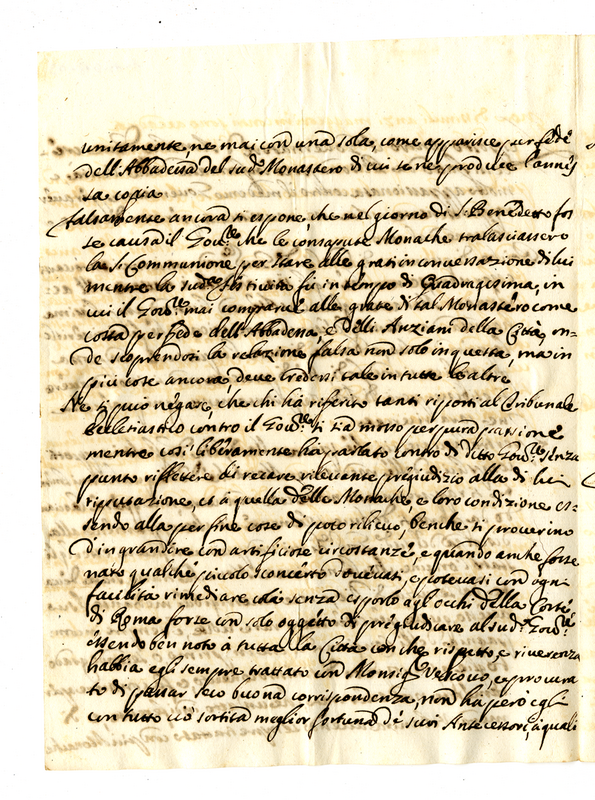 unitamente, ne mai con una sola, come apparisce per fede
dell'Abbadessa del sud.º Monastero di cui se ne produce l'annes
sa copia
Falsamente ancora si espone che nel giorno di S. Benedetto fos
se causa il Gov.re che le consapute Monache tralasciassero
la S. Communione per stare alle grati in conversazione di lui
mentre la sud.a festività fù in tempo di Quadragesima, in
cui il Gov.re mai comparve alle grate di tal Monastero come
costa per fede dell'Abbadessa, e delli Anziani della Città, on=
de scoprendosi la relazione falsa non solo in questa, ma in
più cose ancora deve credersi tale in tutte le altre
Ne si può negare, che chi hà riferito tanti riporti al Tribunale
Ecclesiastico contro il Gov.re si sia mosso per pura passione
mentre così liberamente ha parlato contro di detto Gov.re senza
punto riflettere di recare rilevante pregiudizio alla di lui
riputazione, et à quella delle Monache, e loro condizione es=
sendo alla per fine cose di poco rilievo, benche si procurino
d'ingrandire con artificiose circostanze, e quando anche fosse
nato qualche piccolo sconcerto dovevasi, e potevasi con ogni
facilità rimediare colà senza esporlo agl'occhi della Corte
di Roma forse con solo oggetto di pregiudicare al sud.º Gov.re
essendo ben noto à tutta la Città con che rispetto, e riverenza
habbia egli sempre trattato con Monsig.r Vescovo, e procura
to di passar seco buona corrispondenza, non ha però egli
con tutto ciò sortita meglior fortuna de suoi Antecessori, à quali